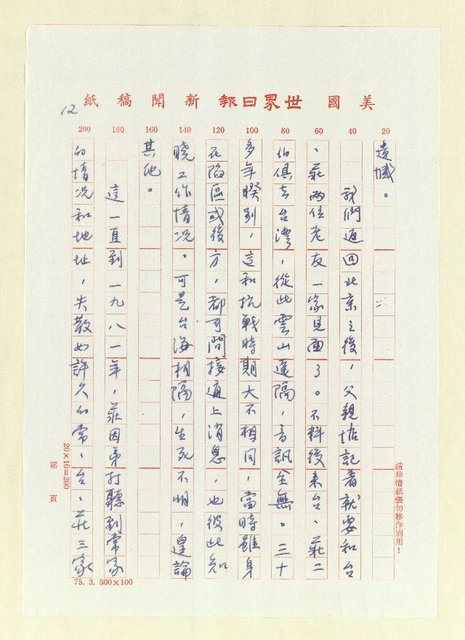 美國世界日報新聞稿紙
12
20
40
60
80
100
120
140
160
180
200
遺憾。
我們返回北京之後,父親惦記著就要和台
、莊兩位老友一家見面了。不料後來台、莊二
伯俱去台灣,從此雲山遠隔,音訊全無。三十
多年暌別,這和抗戰時期大不相同,當時雖身
在陷區或後方,都可間接通上消息,也彼此知
曉工作情況。可是台海相隔,生死不明,遑論
其他。
這一直到一九八一年,莊因弟打聽到常家
的情況和地址,失散如許久的常、台、莊三家
請珍惜紙張勿移作別用!
20×10=200
第 頁
75. 3. 500×100